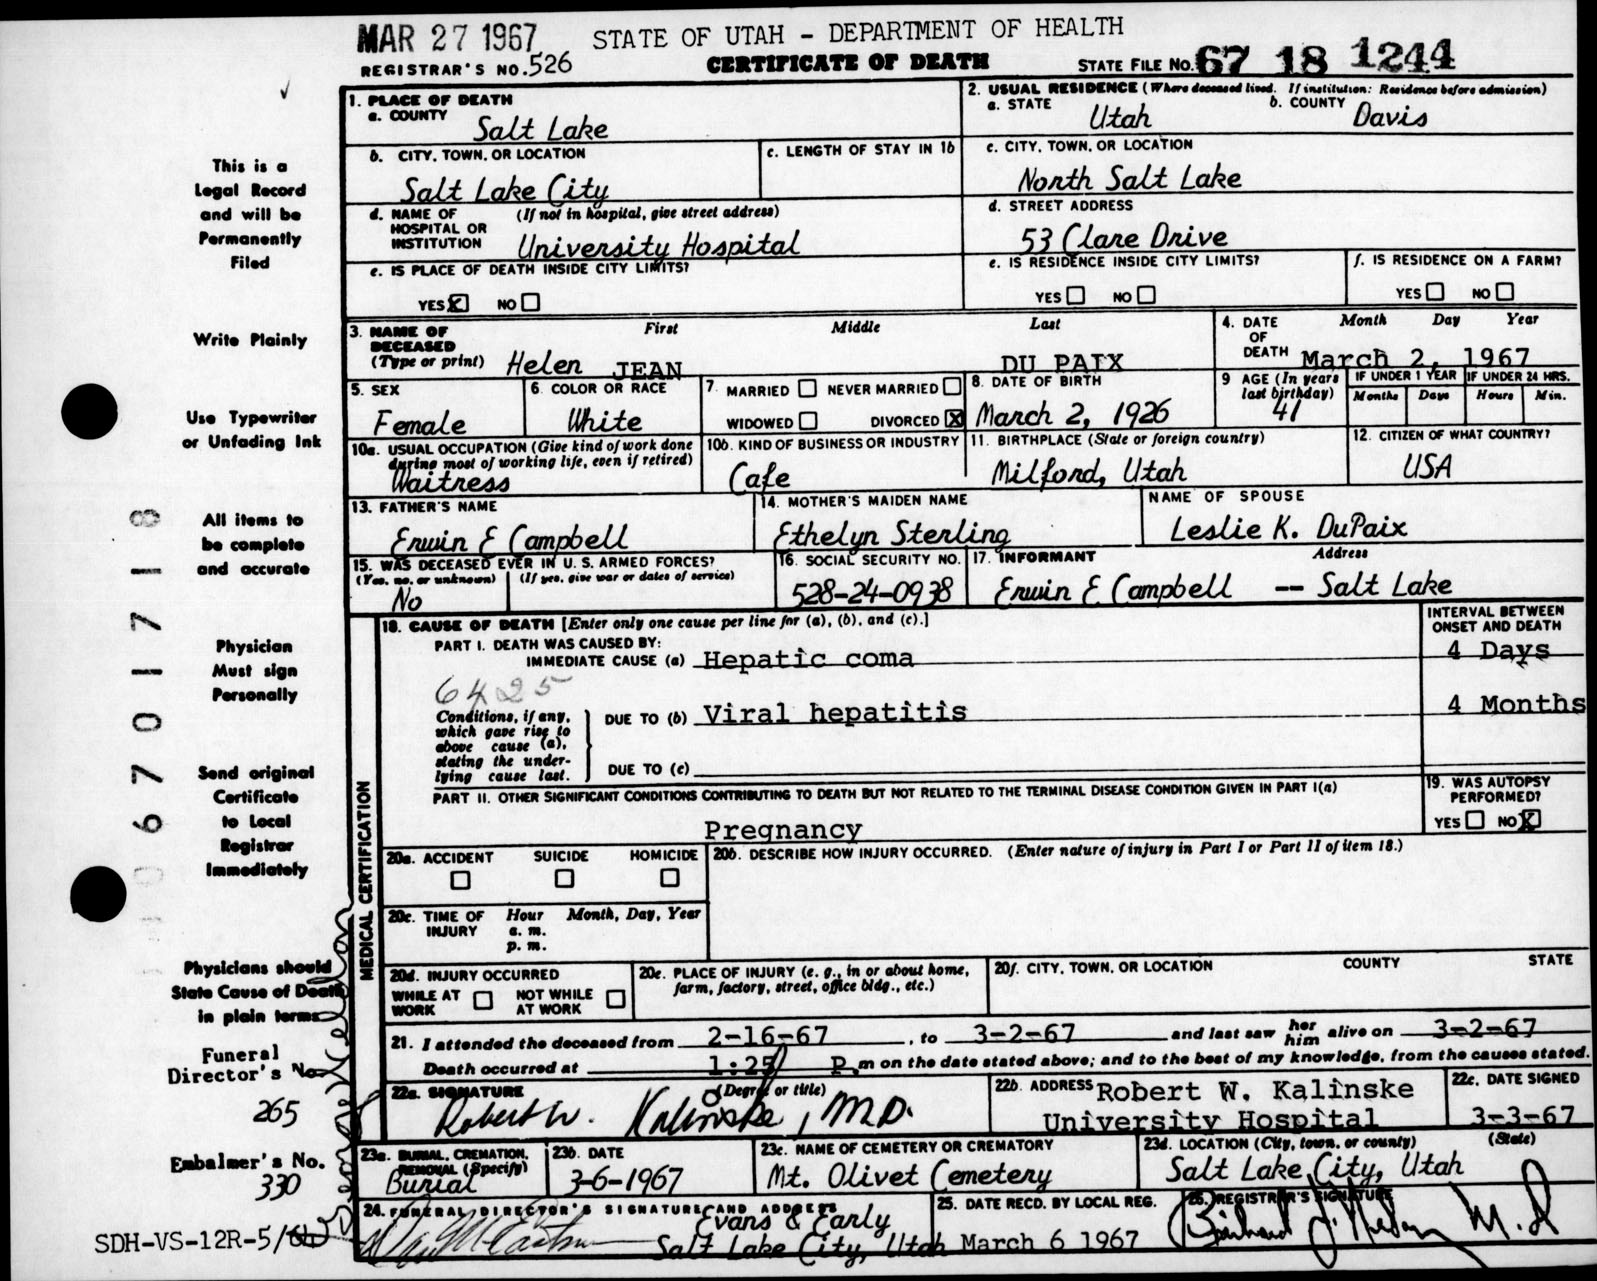 MAR 27 1967 STATE OF UTAH - DEPARTMENT OF HEALTH
REGISTRAR'S NO. 526 CERTIFICATE OF DEATH STATE FILE NO. 67 18 1244
1. PLACE OF DEATH
a. COUNTY Salt Lake
2. USUAL RESIDENCE (Where deceased lived. If institution: Residence before admission)
a. STATE Utah b. COUNTY Davis
b. CITY, TOWN, OR LOCATION Salt Lake City
c. LENGTH OF STAY IN 1b
c. CITY, TOWN, OR LOCATION
North Salt Lake
d. NAME OF HOSPITAL OR INSTITUTION (If not in hospital, give street address)
University Hospital
d. STREET ADDRESS
53 Clare Drive
e. IS PLACE OF DEATH INSIDE CITY LIMITS?
YES X NO
e. IS RESIDENCE INSIDE CITY LIMITS?
YES NO
f. IS RESIDENCE ON A FARM?
YES NO
3. NAME OF DECEASED (Type or print) First Middle Last
Helen JEAN DU PAIX
4. DATE OF DEATH Month Day Year
March 2, 1967
5. SEX
Female
6. COLOR OR RACE
White
7. MARRIED NEVER MARRIED
WIDOWED DIVORCED X
8. DATE OF BIRTH
March 2, 1926
9 AGE (In years last birthday)
41
IF UNDER 1 YEAR IF UNDER 24 HRS.
Months Days Hours Min.
10a. USUAL OCCUPATION (Give kind of work done during most of working life, even if retired)
Waitress
10b. KIND OF BUSINESS OR INDUSTRY
Cafe
11. BIRTHPLACE (State or foreign country)
Milford, Utah
12. CITIZEN OF WHAT COUNTRY?
USA
13. FATHER'S NAME
Erwin E Campbell
14. MOTHER'S MAIDEN NAME
Ethelyn Sterling
NAME OF SPOUSE
Leslie K. DuPaix
15. WAS DECEASED EVER IN U. S. ARMED FORCES?
(Yes, no, or unknown) (If yes, give war or dates of service)
No
16. SOCIAL SECURITY NO.
528-24-0938
17. INFORMANT Address
Erwin E Campbell -- Salt Lake
MEDICAL CERTIFICATION
18. CAUSE OF DEATH [Enter only one cause per line for (a), (b), and (c).]
INTERVAL BETWEEN ONSET AND DEATH
PART I. DEATH WAS CAUSED BY:
IMMEDIATE CAUSE (a) Hepatic coma 4 Days
6425
Conditions, if any, which gave rise to above cause (a), stating the underlying cause last.
DUE TO (b) Viral hepatitis 4 Months
DUE TO (c)
PART II. OTHER SIGNIFICANT CONDITIONS CONTRIBUTING TO DEATH BUT NOT RELATED TO THE TERMINAL DISEASE CONDITION GIVEN IN PART I(a)
Pregnancy
19. WAS AUTOPSY PERFORMED?
YES NO X
20a. ACCIDENT SUICIDE HOMICIDE
20b. DESCRIBE HOW INJURY OCCURRED. (Enter nature of injury in Part I or Part II of item 18.)
20c. TIME OF INJURY Hour Month, Day, Year
a. m.
p. m.
20d. INJURY OCCURRED
WHILE AT WORK NOT WHILE AT WORK
20e. PLACE OF INJURY (e. g., in or about home, farm, factory, street, office bldg., etc.)
20f. CITY, TOWN, OR LOCATION COUNTY STATE
21. I attended the deceased from 2-16-67, to 3-2-67 and last saw her him alive on 3-2-67
Death occurred at 1:25 P. m on the date stated above; and to the best of my knowledge, from the causes stated.
22a. SIGNATURE (Degree or title)
Robert W. Kalinske, M.D.
22b. ADDRESS Robert W. Kalinske
University Hospital
22c. DATE SIGNED
3-3-67
23a. BURIAL, CREMATION, REMOVAL (Specify)
Burial
23b. DATE
3-6-1967
23c. NAME OF CEMETERY OR CREMATORY
Mt. Olivet Cemetery
23d. LOCATION (City, town, or county) (State)
Salt Lake City, Utah
24. FUNERAL DIRECTOR'S SIGNATURE AND ADDRESS
Evans & Early
Salt Lake City, Utah
25. DATE RECD. BY LOCAL REG.
March 6 1967
26. REGISTRAR'S SIGNATURE
M.D
This is a
Legal Record
and will be
Permanently
Filed
Write Plainly
Use Typewriter
or Unfading Ink
All items to
be complete
and accurate
Physician
Must sign
Personally
Send original
Certificate
to Local
Registrar
Immediately
Physicians should
State Cause of Death
in plain terms
Funeral
Director's No.
265
Embalmer's No.
330
SDH-VS-12R-5/
0 6 7 0 1 7 1 8